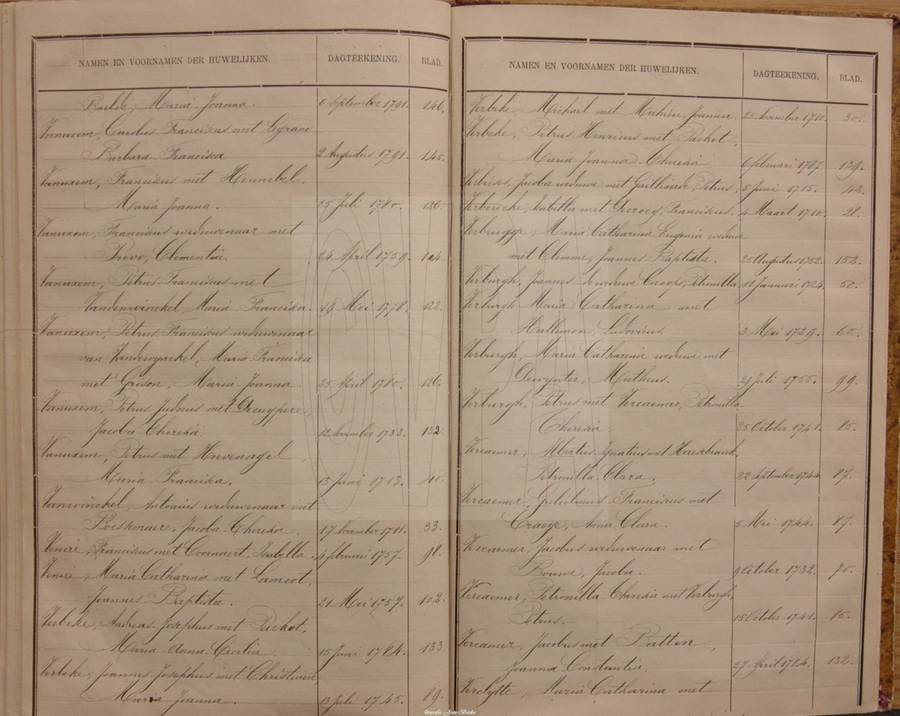 NAMEN EN VOORNAMEN DER HUWELIJKEN. DAGTEEKENING. BLAD.
Maria Joanna. 6 September 1791. 146.
Vanuxem, Carolus Franciscus met Legrand
Barbara Francisca 2 Augustus 1791. 145.
Vanuxem, Franciscus met Hennebel,
Maria Joanna. 25 Juli 1780. 126.
Vanuxem, Franciscus weduwenaar met
Prevo, Clementia. 24 April 1759. 104.
Vanuxem, Petrus Franciscus met
Vandewinckel, Maria Francisca 19 Mei 1778. 122.
Vanuxem, Petrus Franciscus weduwenaar
van Vandewynckel, Maria Francisca
met Grison, Maria Joanna 25 April 1780. 126.
Vanuxem, Petrus Judocus met
Jacoba Theresia. 12 November 1783. 132.
Vanuxem, Petrus met Hovenagel
Maria Francisca. 13 Juni 1713. 40.
Vanwinckel, Antonius weduwenaar met
Jacoba Theresia. 17 November 1711. 33.
Venire, Franciscus met Coornaert, Isabella. 4 februari 1757. 98.
Venire, Maria Catharina met Lamoot,
Joannes Baptista. 21 Mei 1757. 102.
Verbeke, Andreas Josephus met Packet,
Maria Anna Cecilia 15 Juni 1784. 133
Verbeke, Joannes Josephus met Christiaen
Maria Joanna. 13 Juli 1745. 89.
NAMEN EN VOORNAMEN DER HUWELIJKEN. DAGTEEKENING. BLAD.
Verbeke, Michael met Mahieu, Joanna. 25 November 1710. 30.
Verbeke, Petrus Henricus met Packet,
Maria Joanna Theresia 6 februari 1787. 139.
Jacoba weduwe met Guilliaume, Petrus. 5 Juni 1715. 42.
Isabella met Franciscus. 4 Maart 1710. 28.
Verbrugge, Maria Catharina Eugenia weduwe
met Clemme, Joannes Baptista. 25 Augustus 1752. 152.
Verburgh, Joannes Petronilla. 11 Januari 1724. 50.
Verburgh, Maria Catharina met
Ludovicus 3 Mei 1729. 60.
Verburgh, Maria Catharina weduwe met
Dewynter, Matheus. 21 Juli 1755. 99.
Verburgh, Petrus met Vercaemer, Petronilla
Theresia. 25 October 1741. 85.
Vercaemer, Albertus Ignatius met Haezebrouck,
Petronilla Clara. 22 September 1744. 87.
Vercaemer, Guilielmus Franciscus met
Craeye, Anna Clara. 5 Mei 1744. 87.
Vercaemer, Jacobus weduwenaar met
Bouve, Jacoba. 9 October 1732. 70.
Vercaemer, Petronilla Theresia met Verburgh,
Petrus. 15 October 1741. 85.
Vercaemer, Jacobus met Battin,
Joanna Constantia. 27 April 1784. 132.
Verclytte, Maria Catharina met